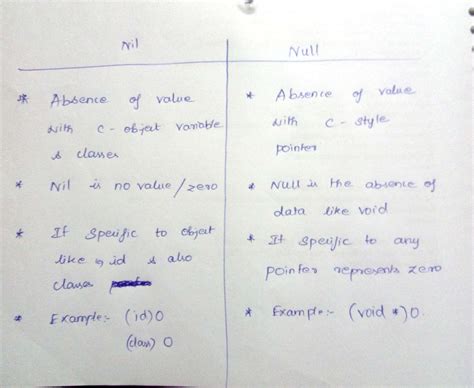 Nil
* Absence of value
with C - object variable
& classes
* Nil is no value/zero
* If Specific to object
like id & also
classes
* Example:- (id)0
(class) 0
Null
* Absence of value
with C - style
pointer
* Null is the absence of
data like void
* It Specific to any
pointer represents zero
* Example:- (void *)0.